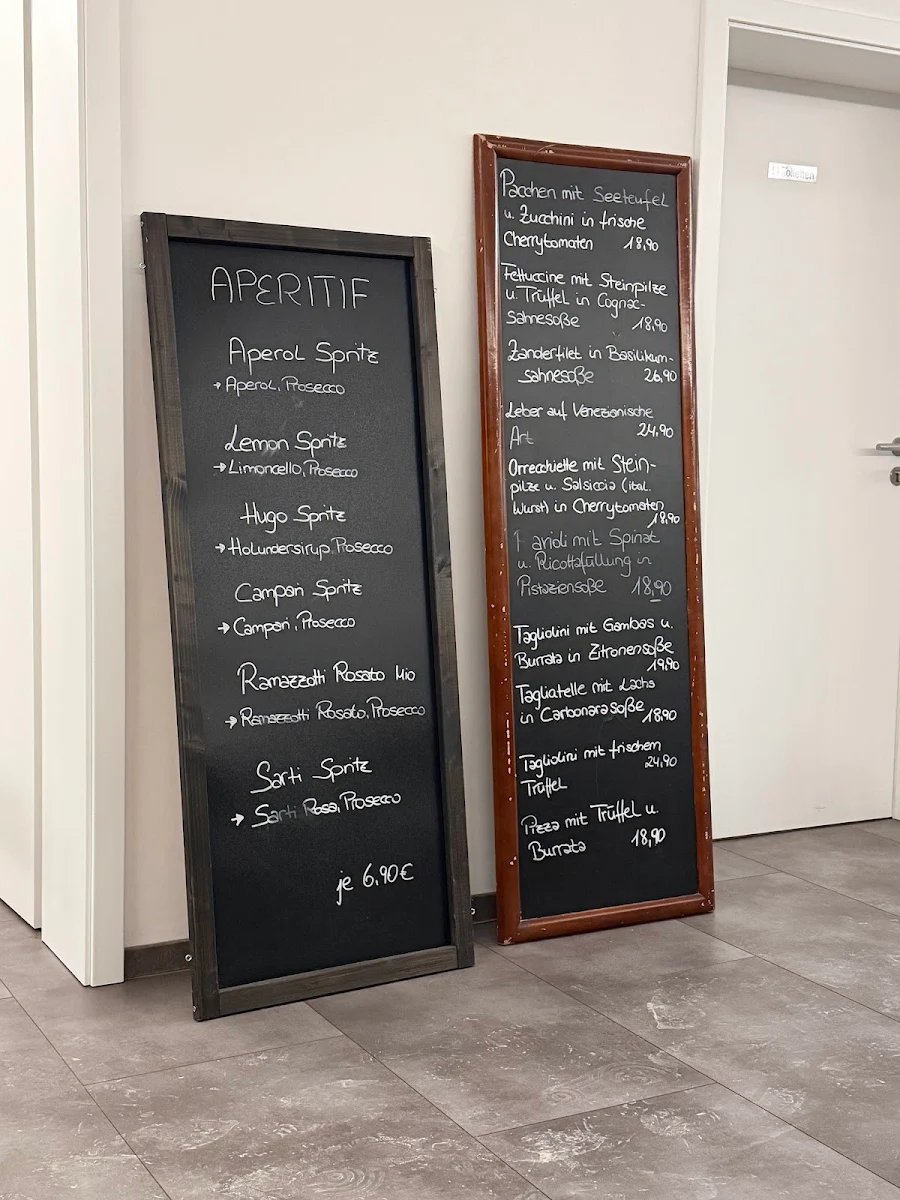 APERITIF
Aperol Spritz
→ Aperol, Prosecco
Lemon Spritz
→ Limoncello, Prosecco
Hugo Spritz
→ Holundersirup, Prosecco
Campari Spritz
→ Campari, Prosecco
Ramazzotti Rosato Mio
→ Ramazzotti Rosato, Prosecco
Sarti Spritz
→ Sarti Rosa, Prosecco
je 6,90€
Pacchen mit Seeteufel
u. Zucchini in frische
Cherrytomaten 18,90
Fettuccine mit Steinpilze
u. Trüffel in Cognac-
sahnesoße 18,90
Zanderfilet in Basilikum-
sahnesoße 26,90
Leber auf Venezianische
Art 24,90
Orrecchiette mit Stein-
pilze u. Salsiccia (ital.
Wurst) in Cherrytomaten
18,90
mit Spinat
u. Ricottafüllung in
Pistaziensoße 18,90
Tagliolini mit Gambas u.
Burrata in Zitronensoße
19,90
Tagliatelle mit Lachs
in Carbonarasoße 18,90
Tagliolini mit frischem
24,90
Trüffel
Pizza mit Trüffel u
Burrata 18,90
Toiletten